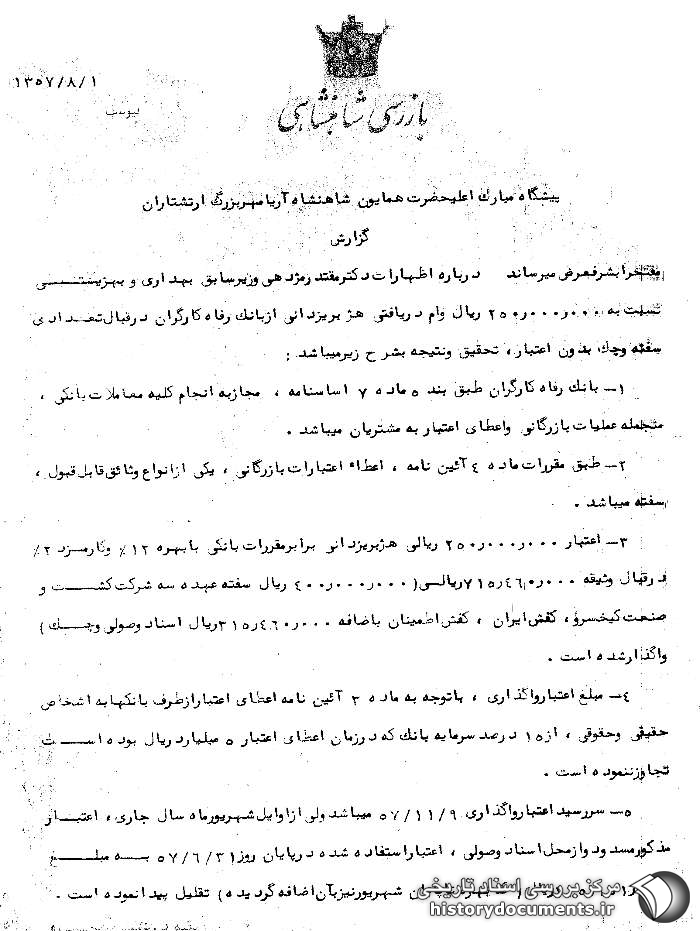 ۱۳۵۷/۸/۱
پیوست
بازرسی شاهنشاهی
پیشگاه مبارک اعلیحضرت همایون شاهنشاه آریامهر بزرگ ارتشتاران
گزارش
مفتخرا بشرفعرض میرساند درباره اظهارات دکتر مقتدر مژدهی وزیر سابق بهداری و بهزیستی
نسبت به ۲۵۰ر۰۰۰ر۰۰۰ ریال وام دریافتی هژبر یزدانی از بانک رفاه کارگران در قبال تعدادی
سفته و چک بدون اعتبار، تحقیق و نتیجه بشرح زیر میباشد :
۱- بانک رفاه کارگران طبق بند ۵ ماده ۷ اساسنامه ، مجاز به انجام کلیه معاملات بانکی ،
منجمله عملیات بازرگانی و اعطای اعتبار به مشتریان میباشد .
۲- طبق مقررات ماده ۴ آئین نامه ، اعطاء اعتبارات بازرگانی ، یکی از انواع وثائق قابل قبول ،
سفته میباشد .
۳- اعتبار ۲۵۰ر۰۰۰ر۰۰۰ ریالی هژبر یزدانی برابر مقررات بانکی با بهره ۱۲٪ و کارمزد ۲٪
در قبال وثیقه ۷۱۵ر۴۶۰ر۰۰۰ ریالی ( ۴۰۰ر۰۰۰ر۰۰۰ ریال سفته عهده سه شرکت کشت و
صنعت کیخسرو ، کفش ایران ، کفش اطمینان باضافه ۳۱۵ر۴۶۰ر۰۰۰ ریال اسناد وصولی و چک )
واگذار شده است .
۴- مبلغ اعتبار واگذاری ، باتوجه به ماده ۳ آئین نامه اعطای اعتبار از طرف بانکها به اشخاص
حقیقی و حقوقی ، از ۱۵ درصد سرمایه بانک که در زمان اعطای اعتبار ۵ میلیارد ریال بوده است
تجاوز ننموده است .
۵- سررسید اعتبار واگذاری ۵۷/۱۱/۹ میباشد ولی از اوایل شهریورماه سال جاری ، اعتبار
مذکور مسدود و از محل اسناد وصولی ، اعتبار استفاده شده در پایان روز ۵۷/۶/۳۱ به مبلغ
شهریور نیز بآن اضافه گردیده ) تقلیل پیدا نموده است .
مرکز بررسی اسناد تاریخی
historydocuments.ir